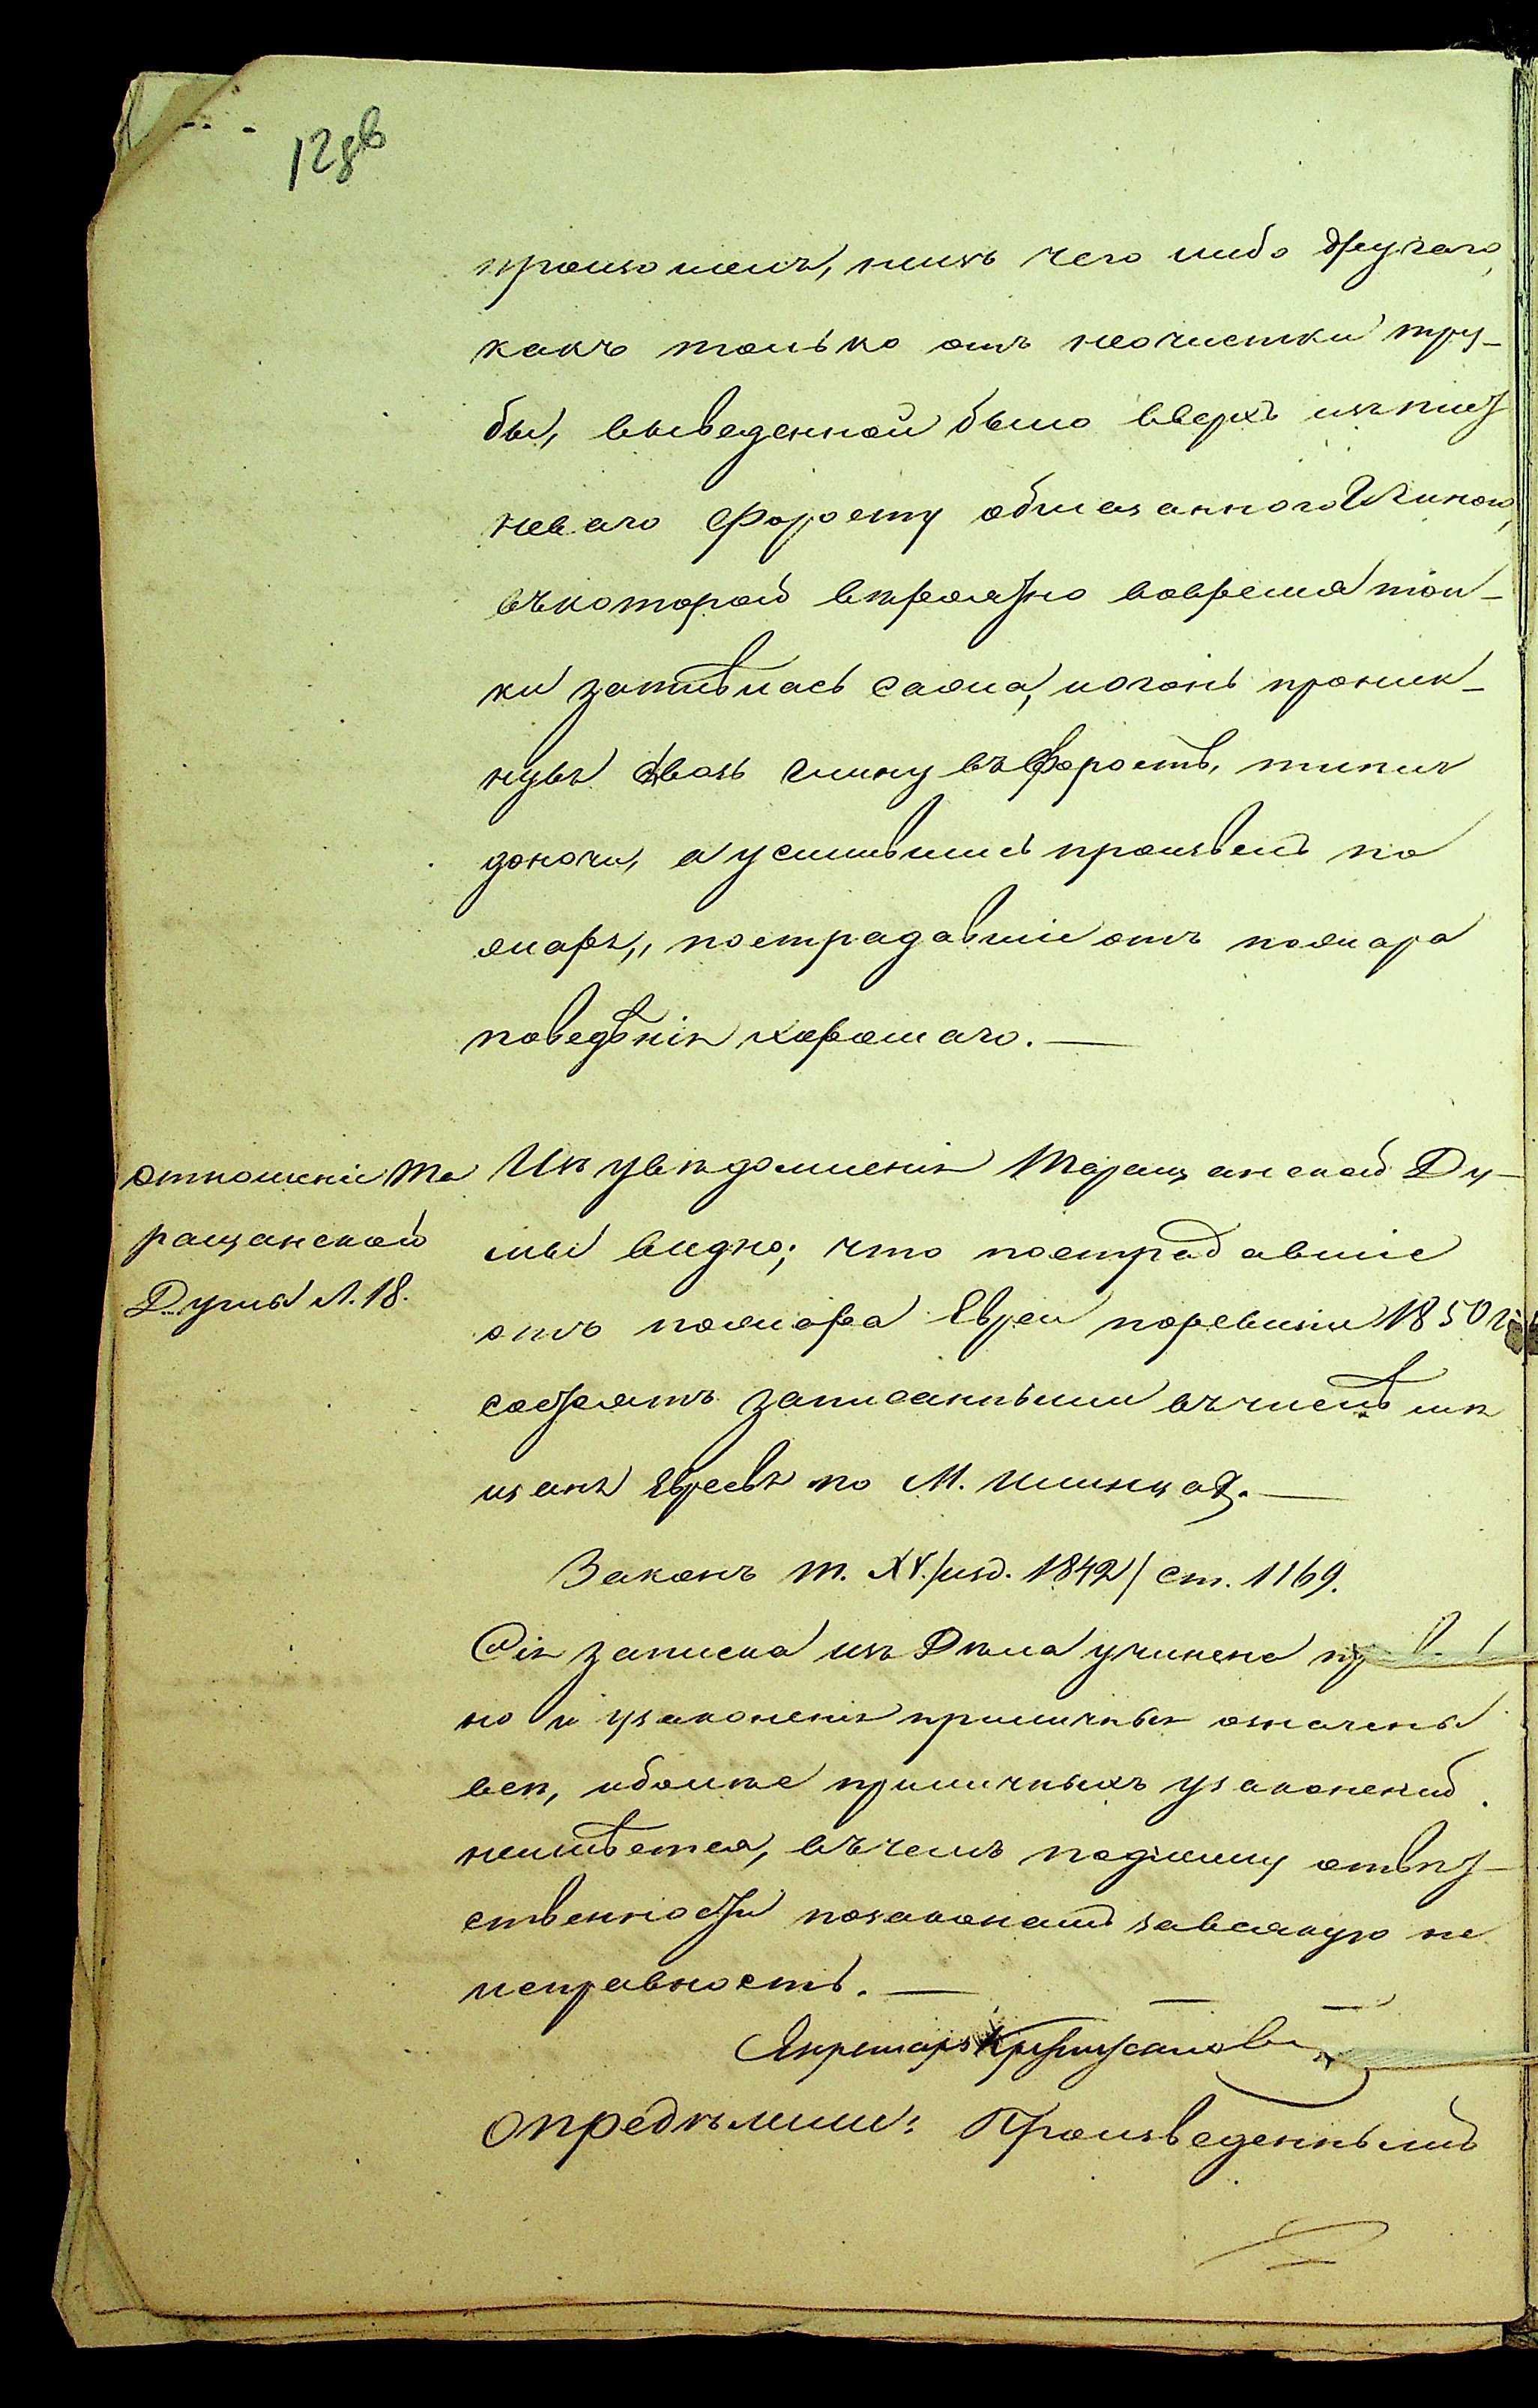 128
произошелъ, низъ чего либо другаго,
какъ только отъ неочистки тру-
бы, выведенной было вверхъ изъ плет
неваго форосту обмазанного Глиною,
въ которой вѣроятно вовремя топ-
ки затлѣлась сажа, и огонь проник-
нувъ сквозь глину въ форостъ, тлилъ
доночи, а усилившись произвелъ по
жаръ, пострадавшіи отъ пожара
поведѣнія хорошаго. —
Отношеніе Та
ращанской
Думы л. 18.
Изъ увѣдомленія Таращанской Ду-
мы видно; что пострадавшіе
отъ пожара Евреи поревизіи 1850 г.
состоятъ записанными въ числѣ мѣ
щанъ Евреевъ по М. Шинцахъ. —
Законъ т. XV./изд. 1842/ ст. 1169.
Сія записка изъ Дѣла учинена
но и узаконенія приличныя означены
всѣ, иболѣе приличныхъ узаконеній
неимѣется, въ чемъ подлежу отвѣт-
ственности позаконамъ завсякую не
исправность. —
Секретарь
Опредѣлили: Произведеннымъ